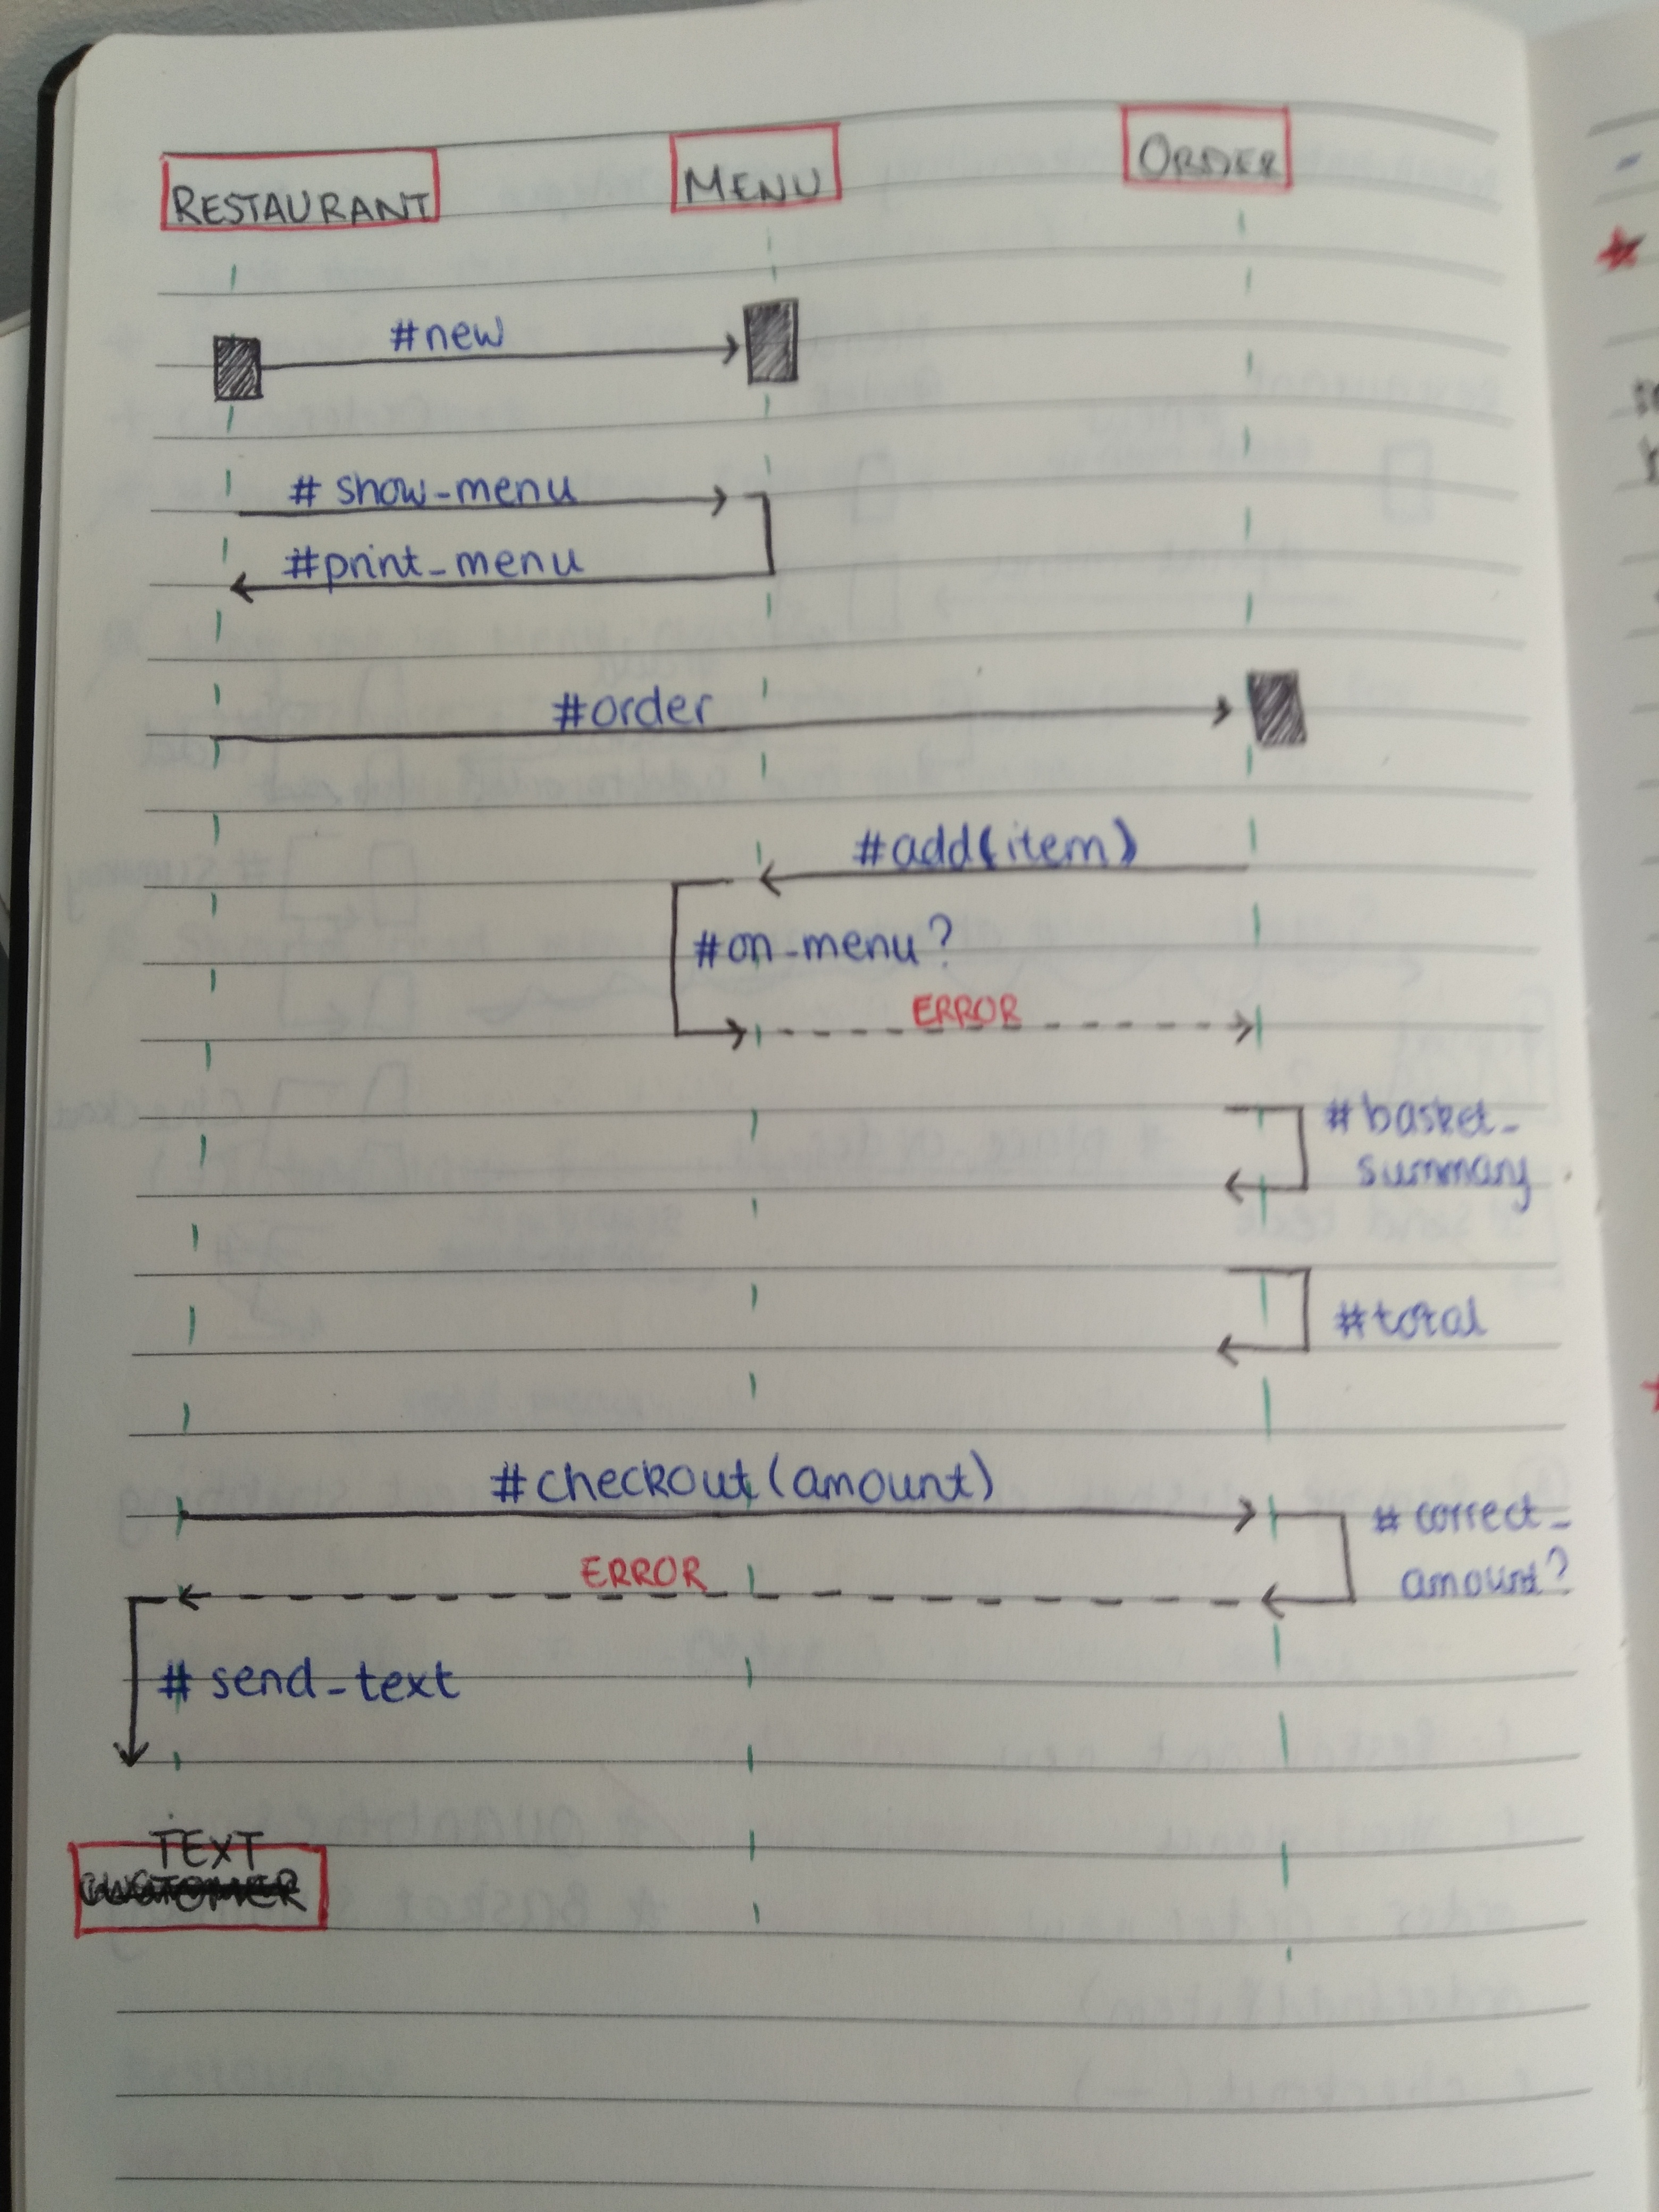 RESTAURANT
MENU
ORDER
#new
# show_menu
#print_menu
#order
#add(item)
#on_menu?
ERROR
#basket_
summary
#total
#checkout(amount)
#correct_
amount?
ERROR
# send_text
TEXT